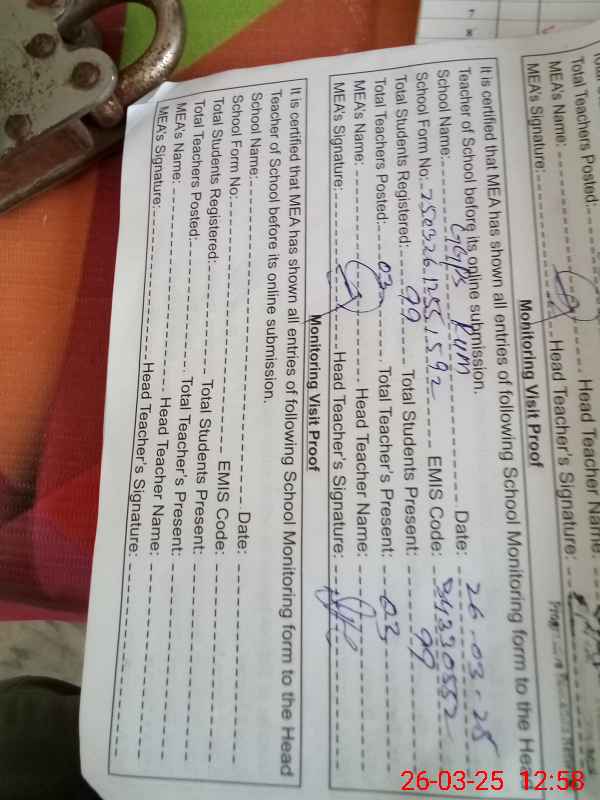 Total Teachers Posted:
MEA's Name: Head Teacher Name:
MEA's Signature: Head Teacher's Signature:
Monitoring Visit Proof
It is certified that MEA has shown all entries of following School Monitoring form to the Head
Teacher of School before its online submission.
School Name: GGPS Date: 26.03.25
School Form No: EMIS Code: 34330552
Total Students Registered: 99 Total Students Present: 99
Total Teachers Posted: 03 Total Teacher's Present: 03
MEA's Name: Head Teacher Name:
MEA's Signature: Head Teacher's Signature:
Monitoring Visit Proof
It is certified that MEA has shown all entries of following School Monitoring form to the Head
Teacher of School before its online submission.
School Name: Date:
School Form No: EMIS Code:
Total Students Registered: Total Students Present:
Total Teachers Posted: Total Teacher's Present:
MEA's Name: Head Teacher Name:
MEA's Signature: Head Teacher's Signature:
26-03-25 12:58